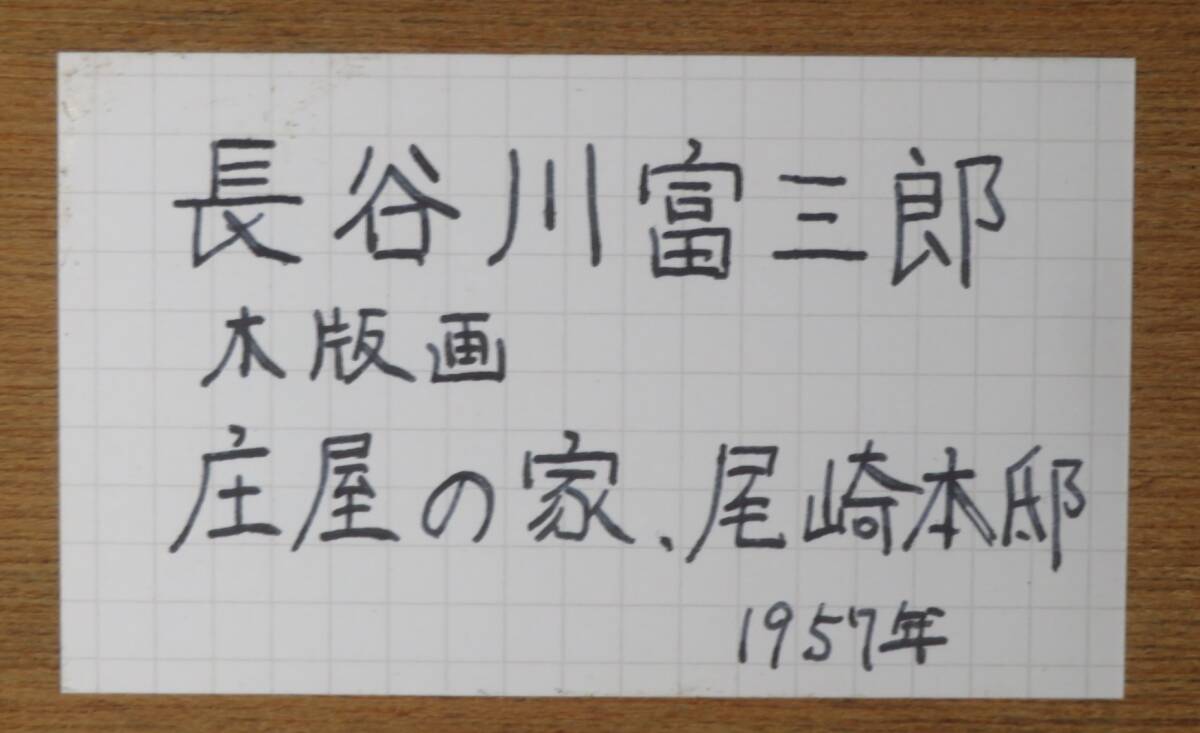 長谷川富三郎
木版画
庄屋の家、尾崎本邸
1957年